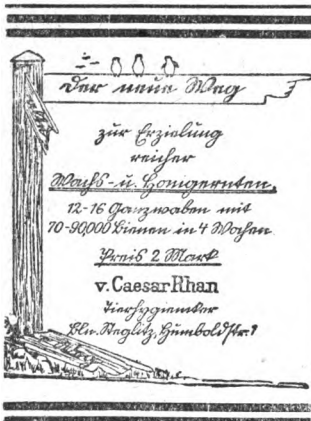 Der neue Weg
zur Erzielung
reicher
Wachs- u. Honigernten.
12-16 Ganzwaben mit
70-90000 Bienen in 4 Wochen
Preis 2 Mark
v. Caesar Rhan
Tierhygieniker
Bln. Steglitz, Humboldtstr. 9